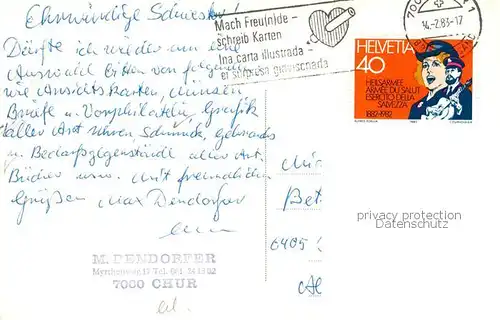 Ehrwürdige Schwester!
Dürfte ich wieder um eine
Auswahl bitten von folgenden
wie Ansichtskarten, Münzen
Briefe u. Vorphilatelie, Grafik
aller Art Uhren Schmuck, Gebrauchs
u. Bedarfsgegenstände aller Art.
Bücher usw. Mit freundlichen
Grüßen Max Dendorfer
M. DENDORFER
7000 CHUR
Mach Freu(n)de –
schreib Karten
Ina carta illustrada –
el surpresa gidavischada
700
14.-2.83.-17
HELVETIA
40
HEILSARMEE
ARMÉE DU SALUT
ESERCITO DELLA
SALVEZZA
1882-1982
6405
privacy protection
Datenschutz